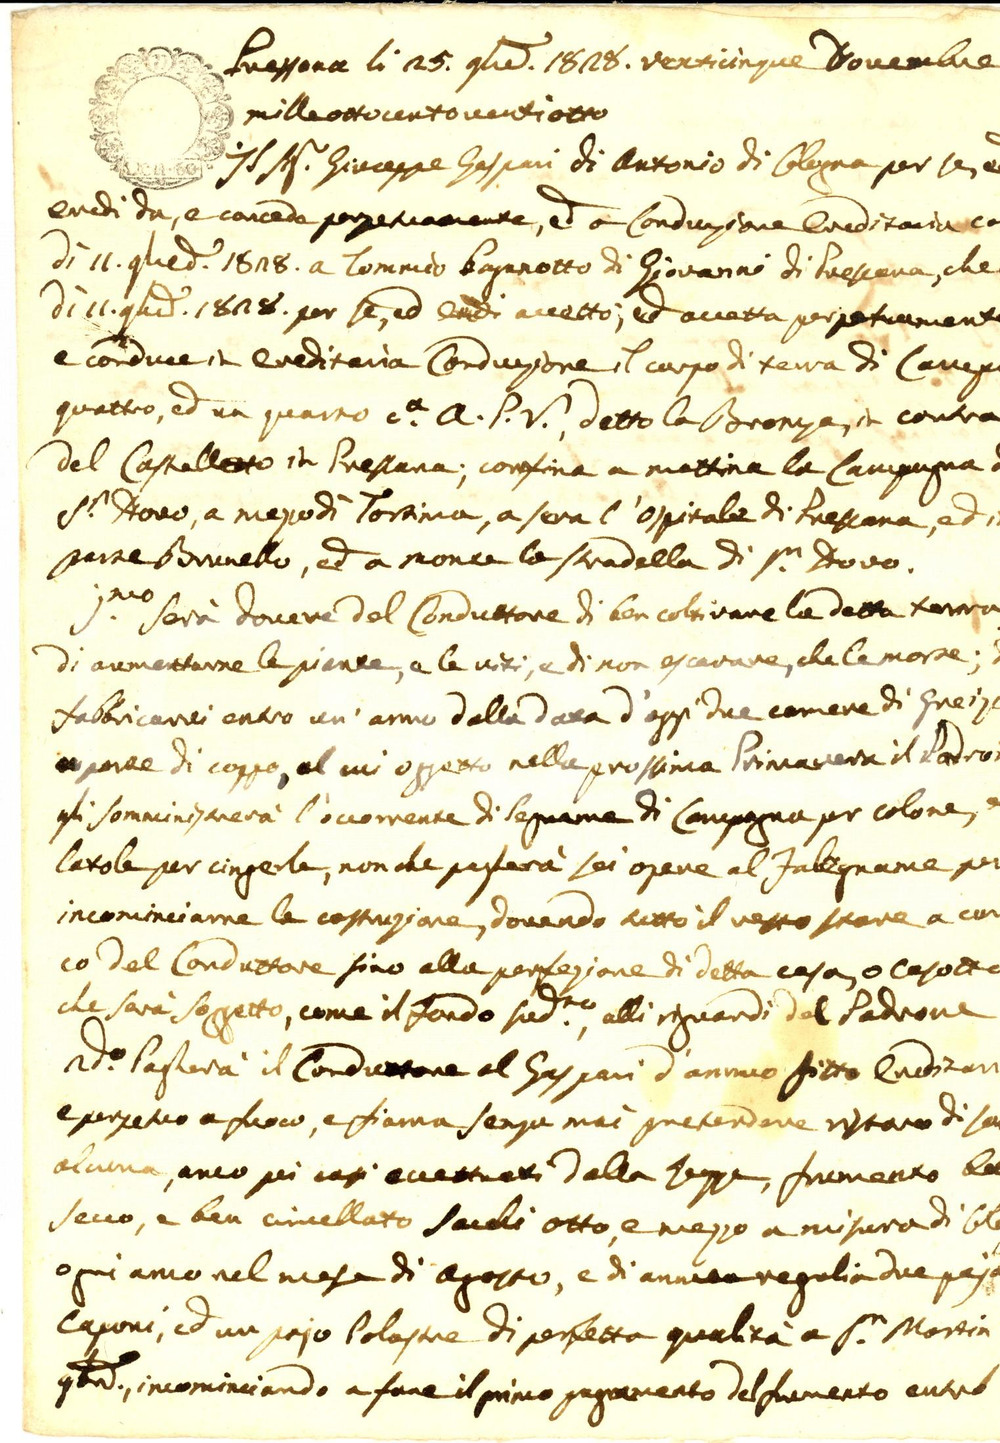 Pressana li 25. 9bre. 1828. venticinque Novembre
mille ottocento ventiotto
Il Sig.r Giuseppe Gaspari di Antonio di Cologna per se, ed
eredi da, e conceda perpetuamente, ed a Conduzione Ereditaria co
dì 11. 9bre. 1828. a Tommio Paganotto di Giovanni di Pressana, che
dì 11. 9bre. 1828. per se, ed eredi accettò, ed accetta perpetuamente
e conduce in Ereditaria Conduzione il corpo di terra di Campi
quattro, ed un quarto c.a A. P. V., detto la Bronza, in contra
del Castelletto in Pressana; confina a mattina la Campagna d
S.n Rovo, a mezzodì Torsima, a sera l'Ospitale di Pressana, ed in
parte Brunello, ed a monte la stradella di S.n Rovo.
P.mo Sarà dovere del Conduttore di ben coltivare la detta terra,
di aumentarne le piante, e le viti, e di non escavare, che le morte; d
fabbricarvi entro un' anno dalla data d'oggi due camere di Greizo
a parte di coppo, al cui oggetto nella prossima Primavera il Padron
gli somministrerà l'occorrente di legname di Campagna per colone, e
latole per cingerle, nonche passerà sei opere al Falegname per
incominciarne la costruzione, dovendo tutto il resto stare a cari
co del Conduttore sino alla perfezione di detta casa, o casotto
che sarà soggetto, come il fondo sud.no, alli riguardi del Padrone
2do. Pagherà il Conduttore al Gaspari d'annuo fitto Ereditari
e perpetuo a fuoco, e fiama senza mai pretendere ristoro di so
alcuna, anco pei casi eccettuati dalla Legge, frumento bel
secco, e ben crivellato Sacchi otto, e mezzo a misura di Colo
ogni anno nel mese di Agosto, e di annua regalia due paja
Caponi, ed un pajo Polastre di perfetta qualità a S.n Martin
9bre., incominciando a fare il primo pagamento del frumento entro